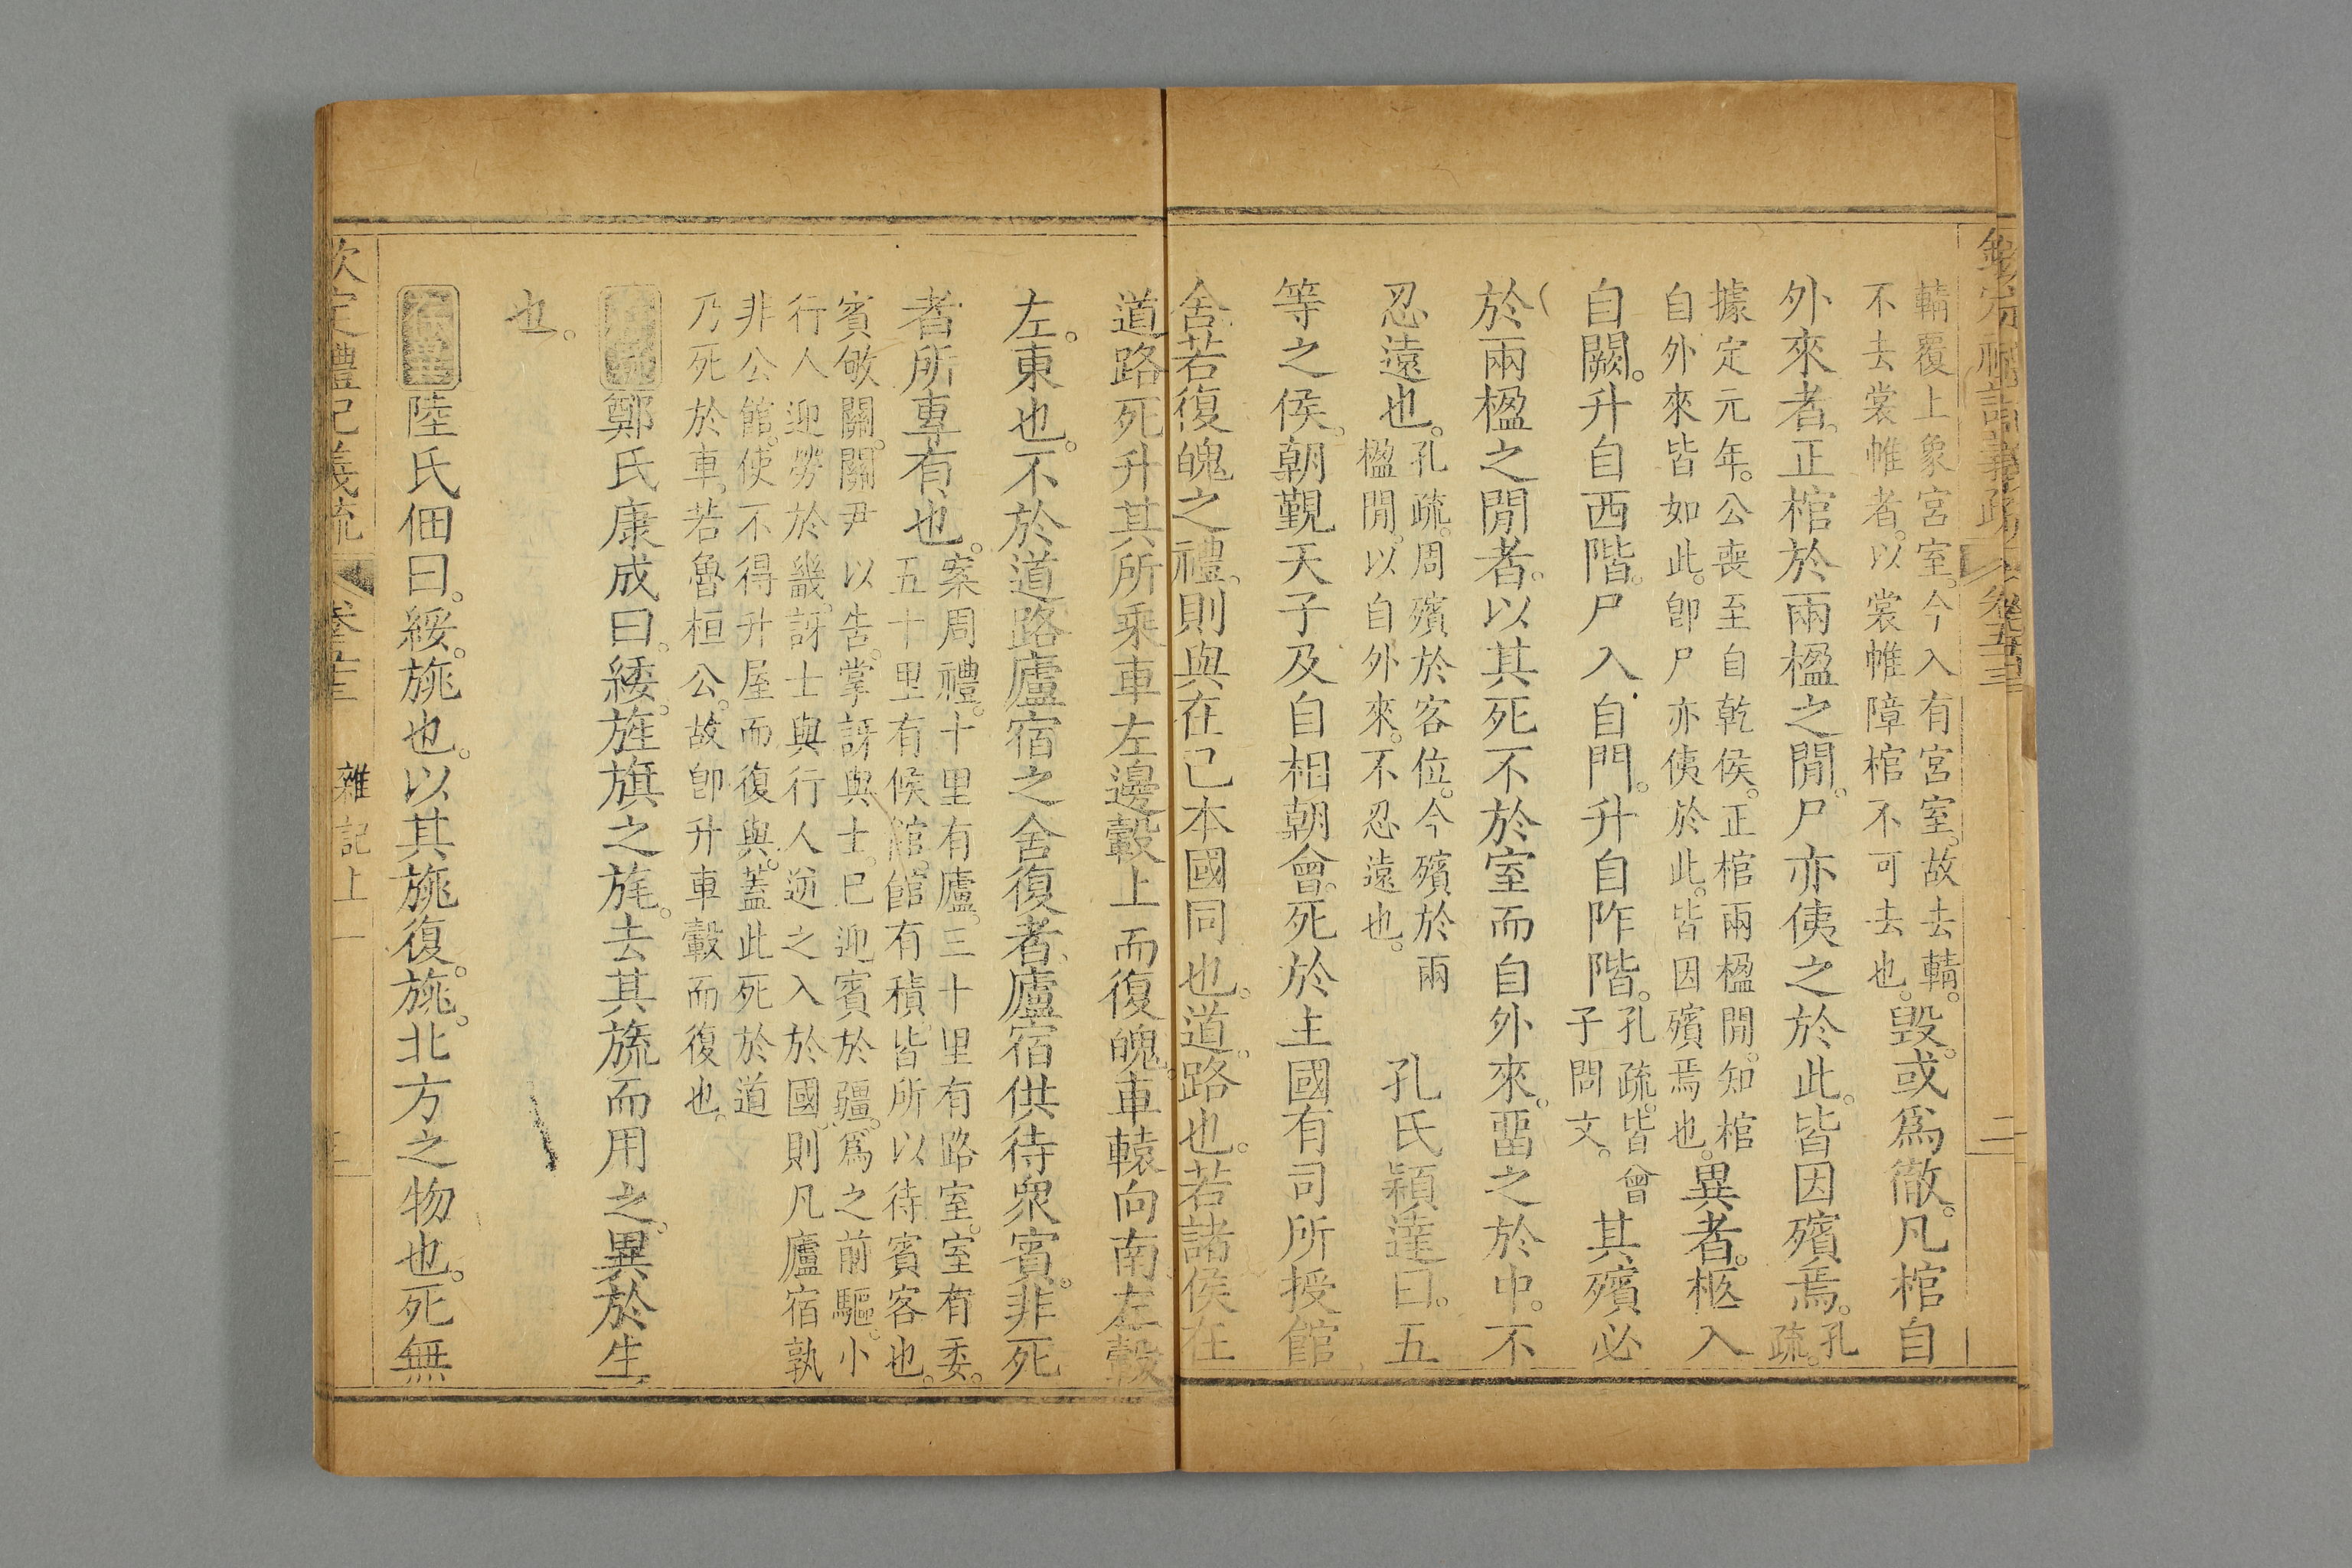 欽定禮記義疏 卷五十三 二
輤覆上象宮室今入有宮室故去輤
不去裳帷者以裳帷障棺不可去也
毀或爲徹凡棺自
外來者正棺於兩楹之閒尸亦侇之於此皆因殯焉
孔
疏
據定元年公喪至自乾侯正棺兩楹閒知棺
自外來皆如此卽尸亦侇於此皆因殯焉也
異者柩入
自闕升自西階尸入自門升自阼階
孔疏皆曾
子問文
其殯必
於兩楹之閒者以其死不於室而自外來畱之於中不
忍遠也
孔疏周殯於客位今殯於兩
楹閒以自外來不忍遠也
孔氏穎達曰五
等之侯朝覲天子及自相朝會死於主國有司所授館
舍若復魄之禮則與在己本國同也道路也若諸侯在
道路死升其所乘車左邊轂上而復魄車轅向南左轂
左東也不於道路廬宿之舍復者廬宿供待衆賓非死
者所專有也
案周禮十里有廬三十里有路室室有委
五十里有候館館有積皆所以待賓客也
賓敂關關尹以告掌訝與士已迎賓於疆爲之前驅小
行人迎勞於畿訝士與行人逆之入於國則凡廬宿孰
非公館使不得升屋而復與蓋此死於道
乃死於車若魯桓公故卽升車轂而復也
鄭氏康成曰綏旌旗之旄去其旒而用之異於生
也
陸氏佃曰綏旐也以其旐復旐北方之物也死無
欽定禮記義疏 卷五十三 雜記上